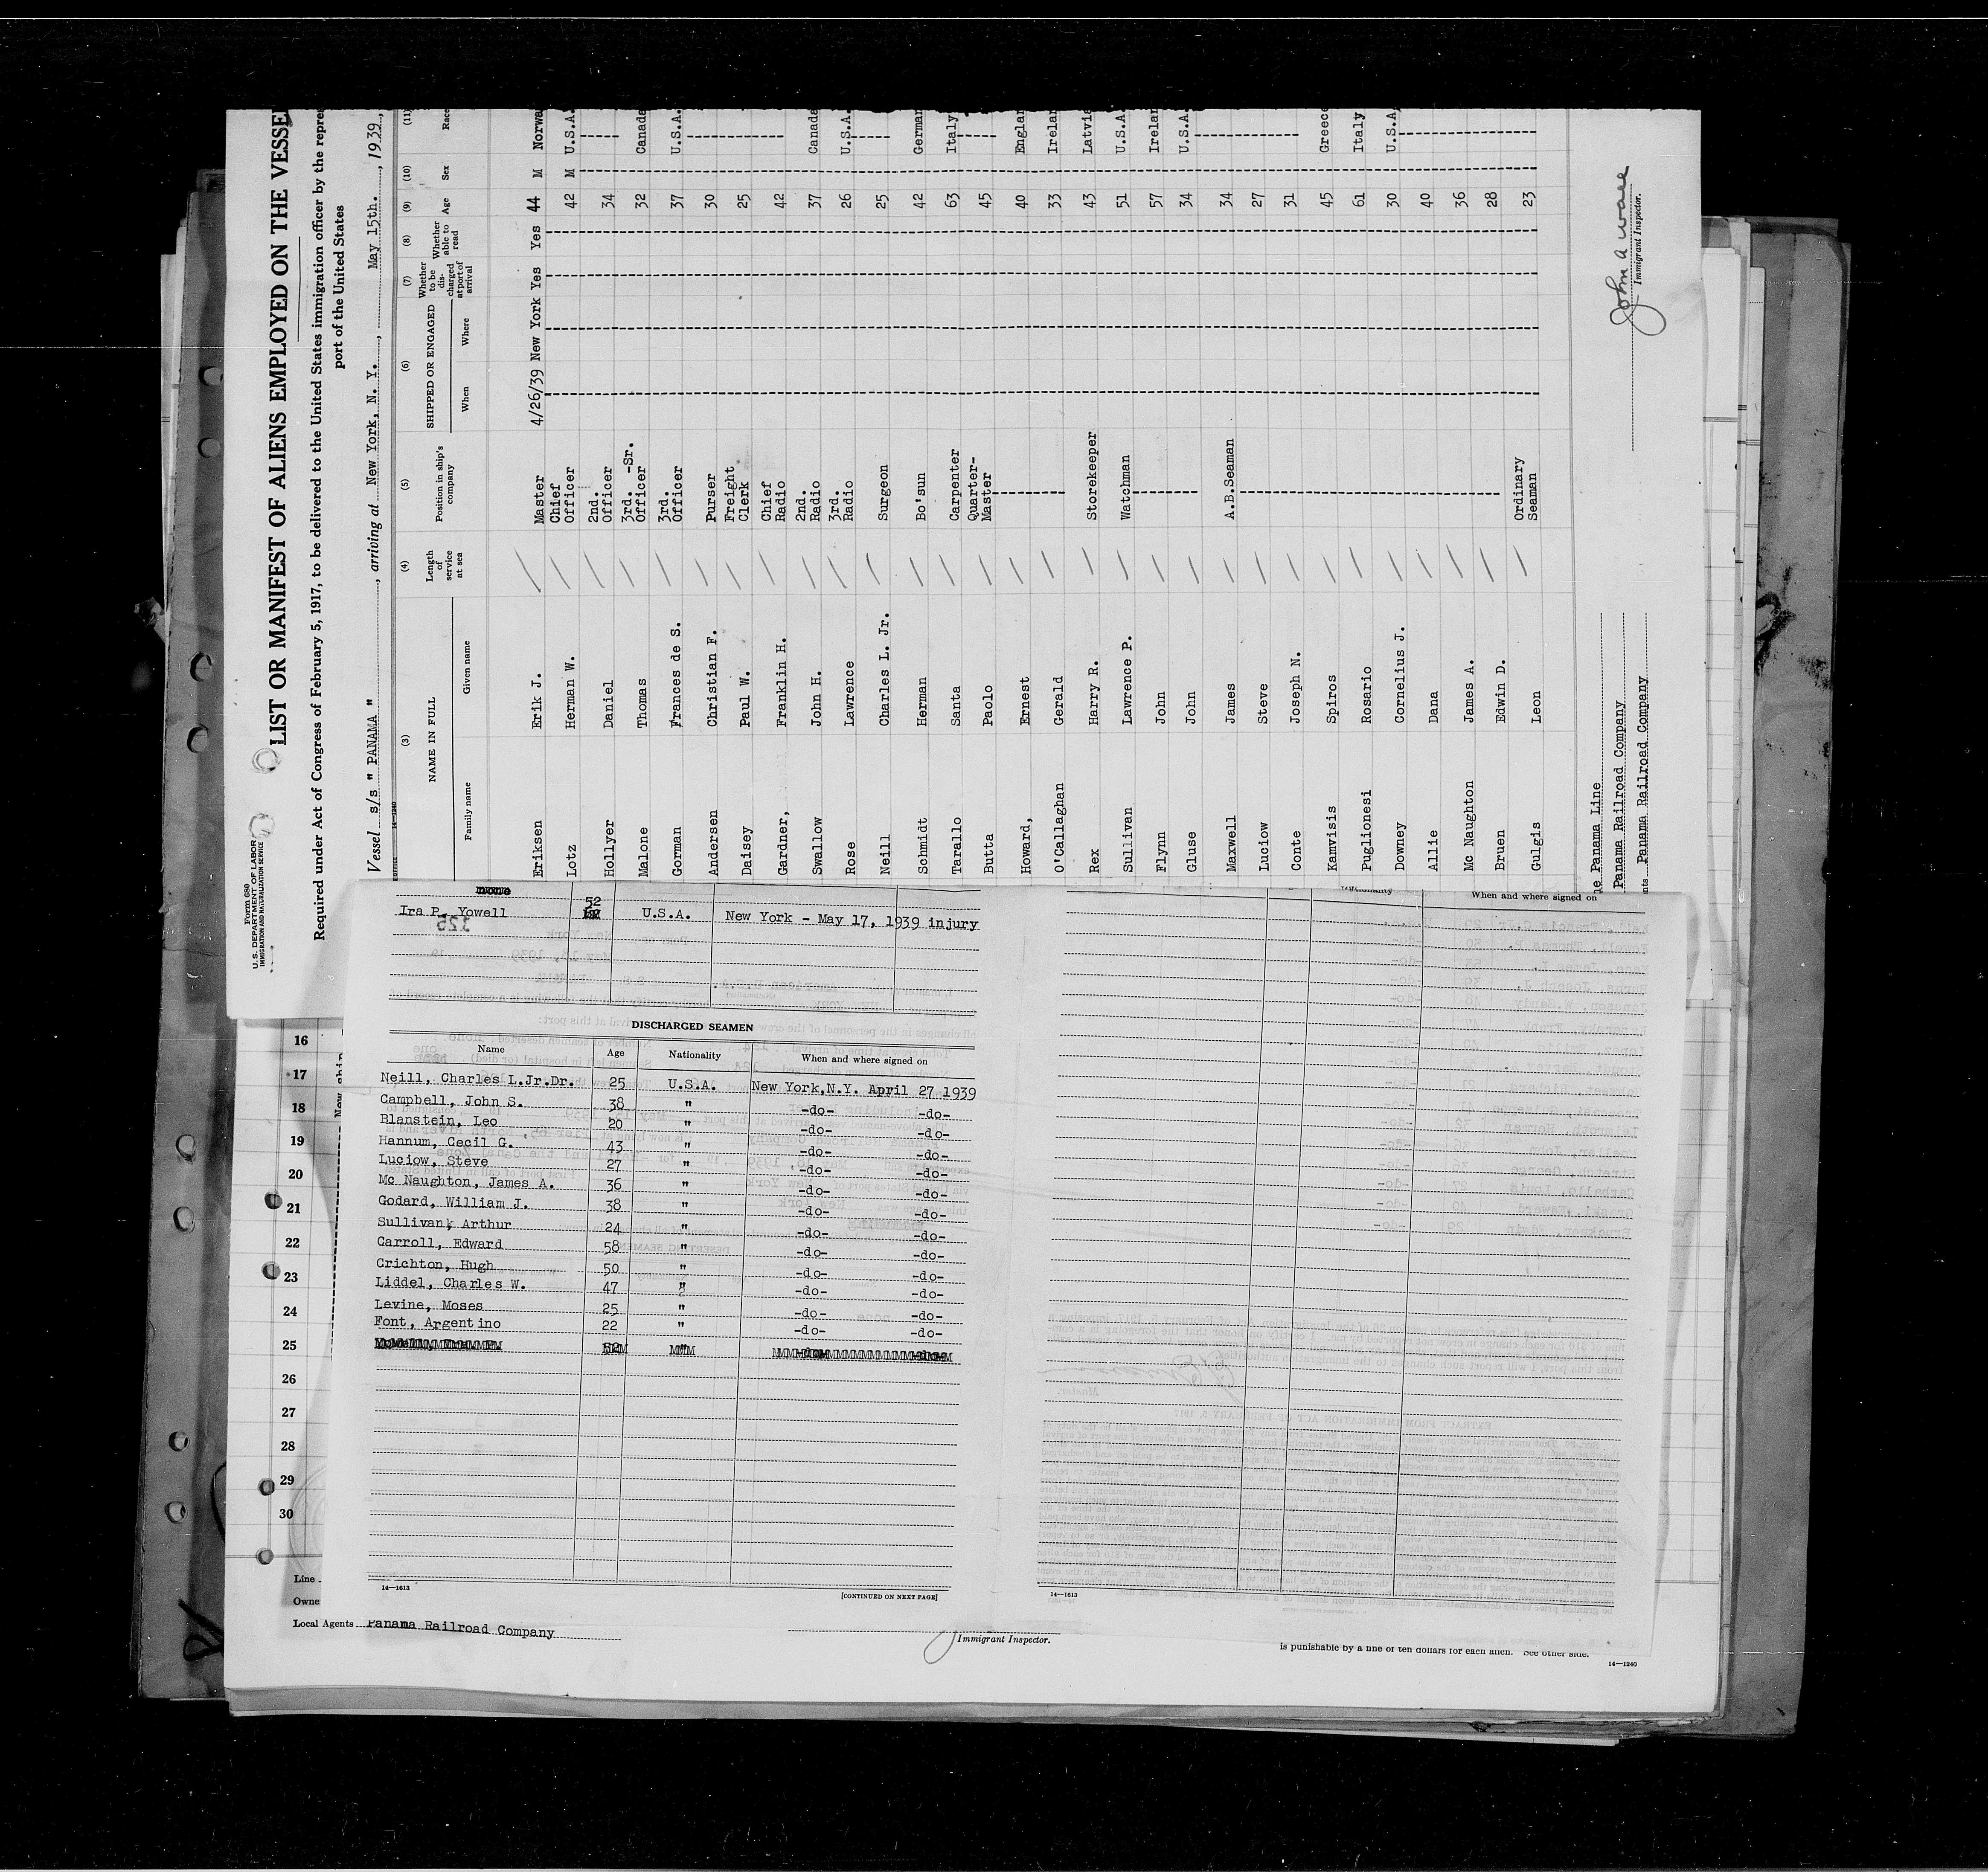 Form 680
U. S. DEPARTMENT OF LABOR
IMMIGRATION AND NATURALIZATION SERVICE
LIST OR MANIFEST OF ALIENS EMPLOYED ON THE VESSE
Required under Act of Congress of February 5, 1917, to be delivered to the United States immigration officer by the repre
port of the United States
Vessel s/s " PANAMA " , arriving at New York, N. Y. , May 15th. , 1939,
(3) (4) (5) (6) (7) (8) (9) (10) (11)
NAME IN FULL Length of service at sea Position in ship's company SHIPPED OR ENGAGED Whether to be dis- charged at port of arrival Whether able to read Age Sex Race
Family name Given name When Where
Eriksen Erik J. Master 4/26/39 New York Yes Yes 44 M Norwa
Lotz Herman W. Chief Officer 42 M U.S.A.
Hollyer Daniel 2nd. Officer 34
Malone Thomas 3rd. -Sr. Officer 32 Canada
Gorman Frances de S. 3rd. Officer 37 U.S.A.
Andersen Christian F. Purser 30
Daisey Paul W. Freight Clerk 25
Gardner, Franklin H. Chief Radio 42
Swallow John H. 2nd. Radio 37 Canada
Rose Lawrence 3rd. Radio 26 U.S.A.
Neill Charles L. Jr. Surgeon 25
Schmidt Herman Bo'sun 42 German
Tarallo Santa Carpenter 63 Italy
Butta Paolo Quarter-Master 45
Howard, Ernest 40 Englan
O'Callaghan Gerald 33 Irelan
Rex Harry R. Storekeeper 43 Latvia
Sullivan Lawrence P. Watchman 51 U.S.A.
Flynn John 57 Irelan
Gluse John 34 U.S.A.
Maxwell James A.B.Seaman 34
Luciow Steve 27
Conte Joseph N. 31
Kamvisis Spiros 45 Greece
Puglionesi Rosario 61 Italy
Downey Cornelius J. 30 U.S.A.
Allie Dana 40
Mc Naughton James A. 36
Bruen Edwin D. 28
Gulgis Leon Ordinary Seaman 23
Panama Line
Panama Railroad Company
nts Panama Railroad Company
Immigrant Inspector.
none
Ira P. Yowell 52 U.S.A. New York - May 17, 1939 injury
325
DISCHARGED SEAMEN
Name Age Nationality When and where signed on
Neill, Charles L.Jr.Dr. 25 U.S.A. New York,N.Y. April 27 1939
Campbell, John S. 38 " -do- -do-
Blanstein, Leo 20 " -do- -do-
Hannum, Cecil G. 43 " -do- -do-
Luciow, Steve 27 " -do- -do-
Mc Naughton, James A. 36 " -do- -do-
Godard, William J. 38 " -do- -do-
Sullivan, Arthur 24 " -do- -do-
Carroll, Edward 58 " -do- -do-
Crichton, Hugh 50 " -do- -do-
Liddel, Charles W. 47 " -do- -do-
Levine, Moses 25 " -do- -do-
Font, Argentino 22 " -do- -do-
14—1613
[CONTINUED ON NEXT PAGE]
When and where signed on
14—1613
16
17
18
19
20
21
22
23
24
25
26
27
28
29
30
Line
Owne
Local Agents Panama Railroad Company
Immigrant Inspector.
is punishable by a fine of ten dollars for each alien. See other side.
14—1240